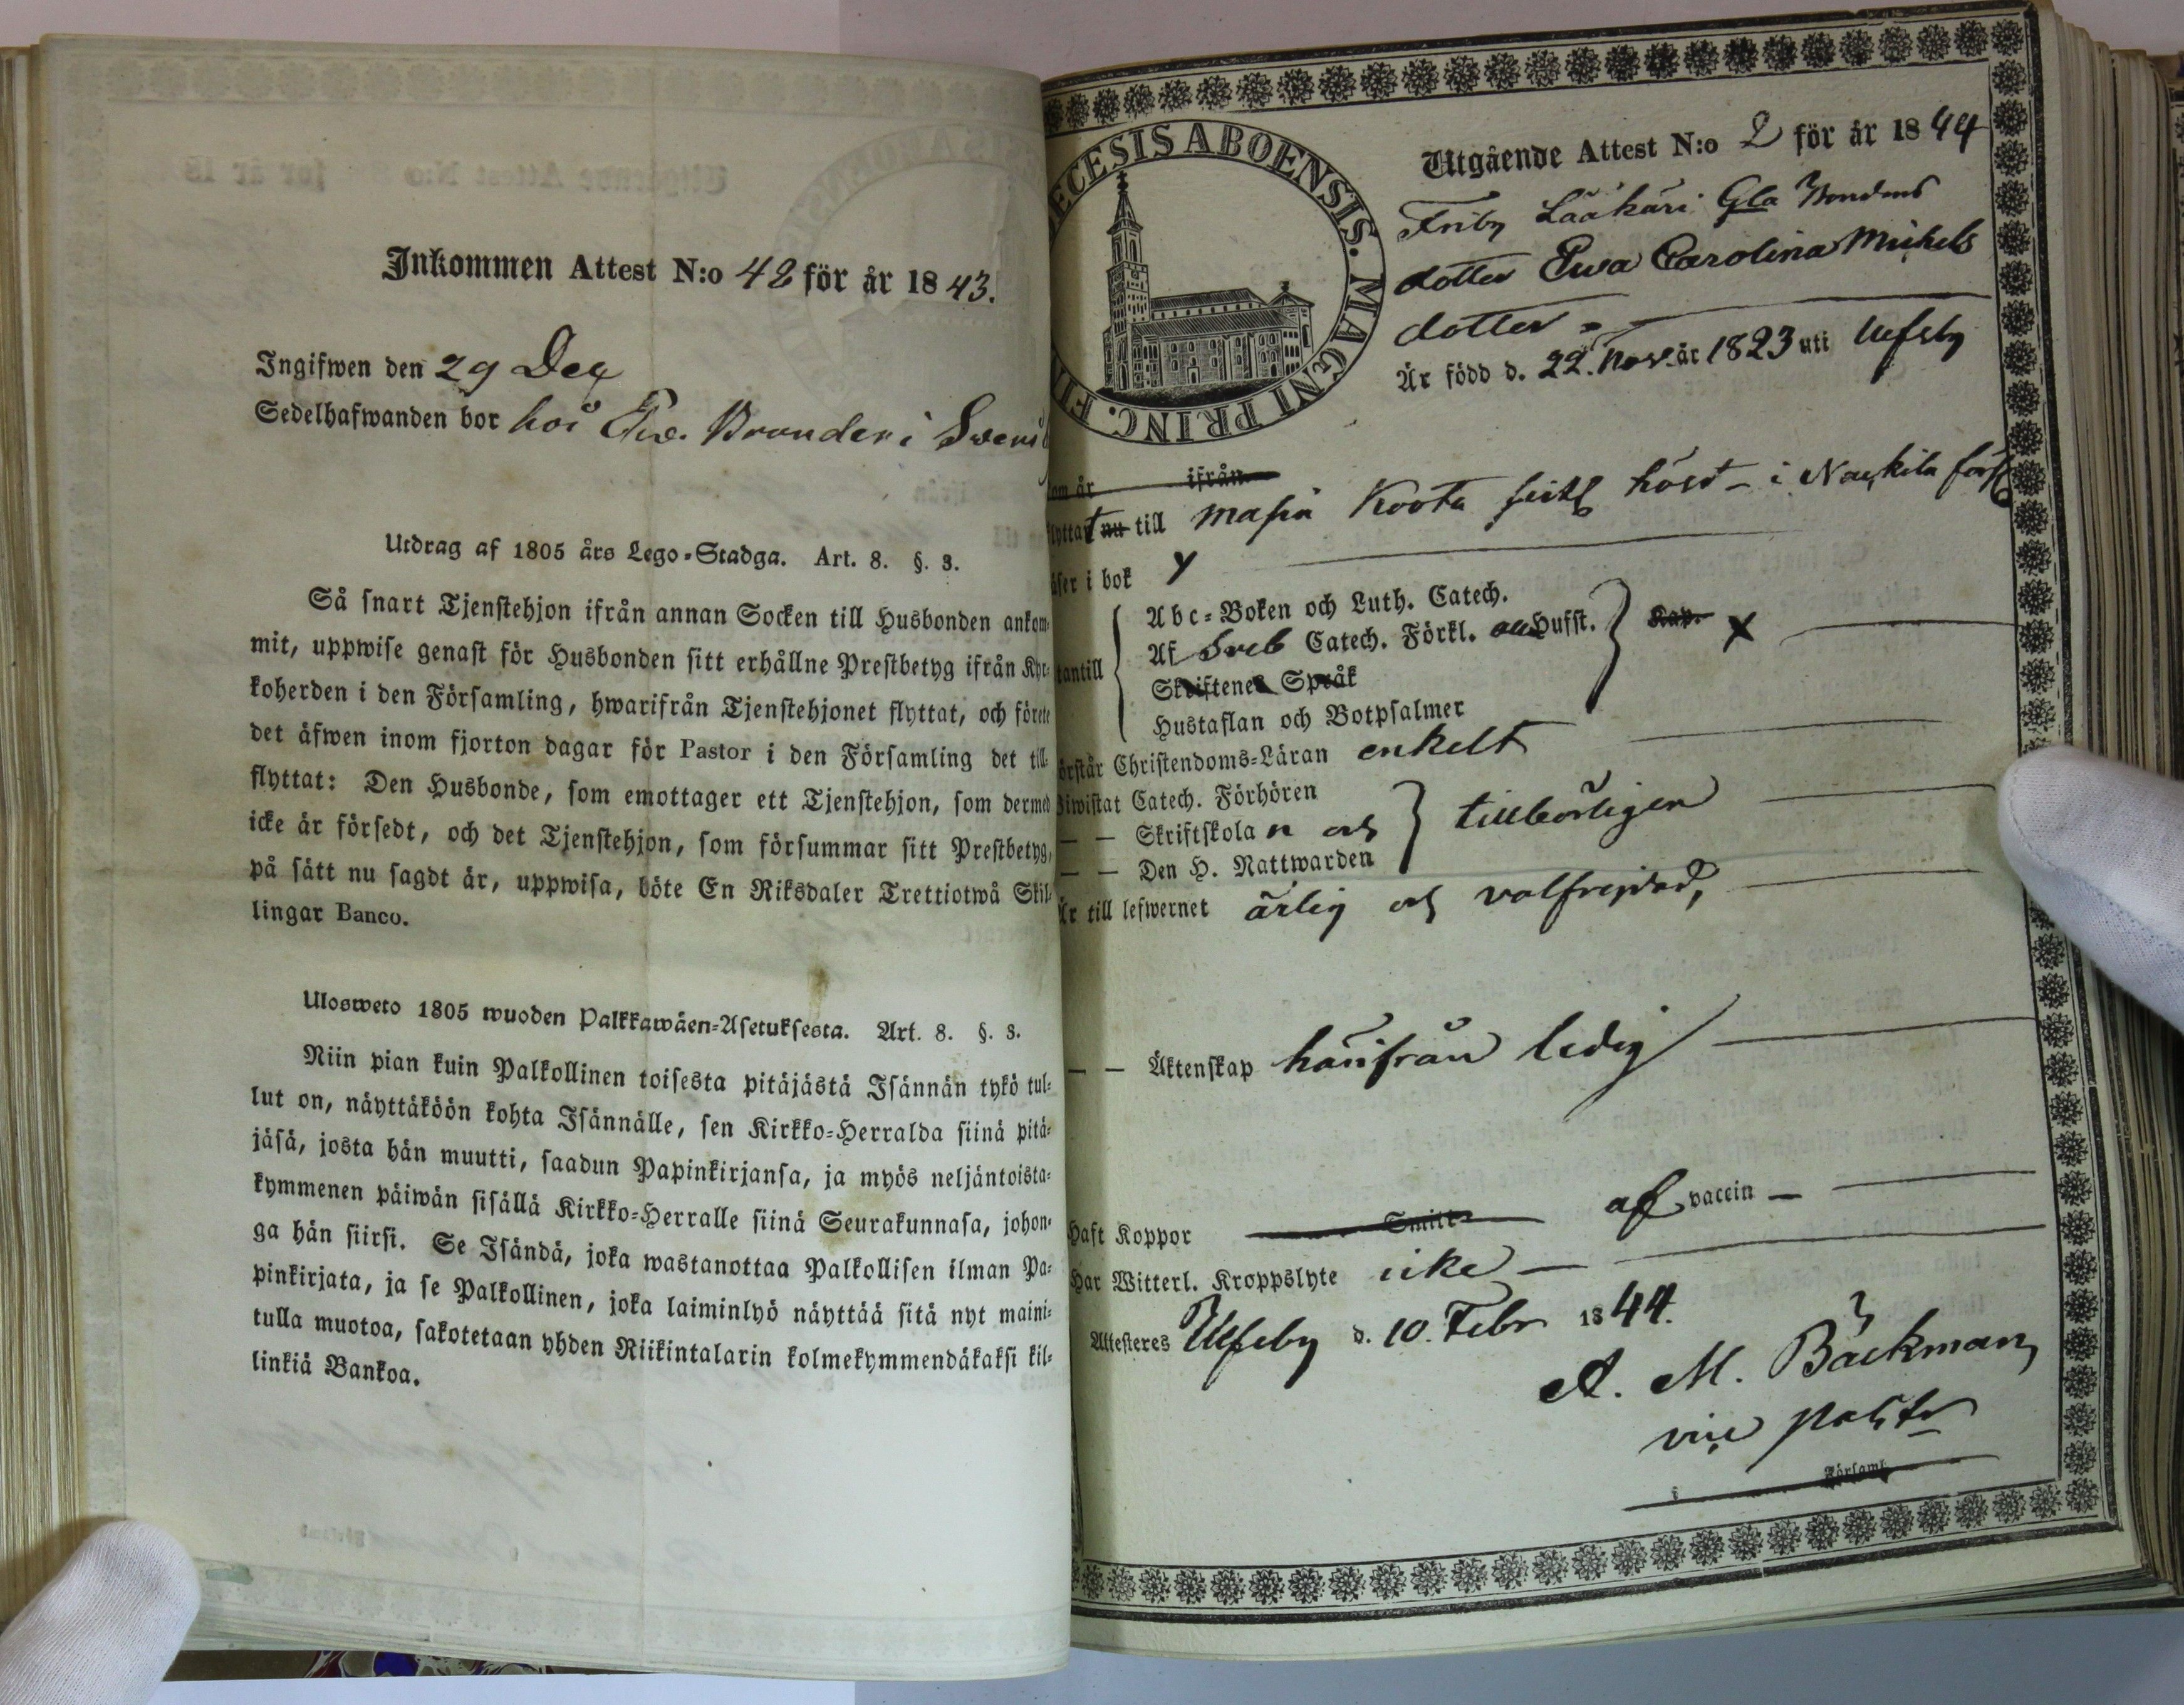 Inkommen Attest N:o 48 för år 1843.
Ingifwen den 29 Dec
Sedelhafwanden bor hos Brander i
Utdrag af 1805 års Lego-Stadga. Art. 8. §. 3.
Så snart Tjenstehjon ifrån annan Socken till Husbonden ankom-
mit, uppwise genast för Husbonden sitt erhållne Prestbetyg ifrån Kyr-
koherden i den Församling, hwarifrån Tjenstehjonet flyttat, och förete
det äfwen inom fjorton dagar för Pastor i den Församling det till-
flyttat: Den Husbonde, som emottager ett Tjenstehjon, som dermed
icke är försedt, och det Tjenstehjon, som försummar sitt Prestbetyg,
på sätt nu sagdt är, uppwisa, böte En Riksdaler Trettiotwå Skil-
lingar Banco.
Ulosweto 1805 wuoden Palkkawäen-Asetuksesta. Art. 8. §. 3.
Niin pian kuin Palkollinen toisesta pitäjästä Isännän tykö tul-
lut on, näyttäköön kohta Isännälle, sen Kirkko-Herralda siinä pitä-
jäsä, josta hän muutti, saadun Papinkirjansa, ja myös neljäntoista-
kymmenen päiwän sisällä Kirkko-Herralle siinä Seurakunnasa, johon-
ga hän siirsi. Se Isändä, joka wastanottaa Palkollisen ilman Pa-
pinkirjata, ja se Palkollinen, joka laiminlyö näyttää sitä nyt maini-
tulla muotoa, sakotetaan yhden Riikintalarin kolmekymmendäkaksi kil-
linkiä Bankoa.
ŒCESIS ABOENSIS. MAGNI PRINC. FI
Utgående Attest N:o 2 för år 1844
Friby Lääkäri Gla Bondens
dotter Ewa Carolina Michels
dotter
Är född d. 22. Nov. år 1823 uti Ulfsby
om är ifrån
lyttat nu till Masia Koota sistl höst i Nackila förs
äser i bok
Abc-Boken och Luth. Catech.
Af Sveb Catech. Förkl. Husst.
Skriftenes Språk
Hustaflan och Botpsalmer
tantill
Kap. x
örstår Christendoms-Läran enkelt
Biwistat Catech. Förhören
— — Skriftskolan och
— — Den H. Nattwarden
tillbörligen
Är till lefwernet ärlig och välfrejdad,
— — Äktenskap härifrån ledig
Haft Koppor Smitt- af vaccin —
Har Witterl. Kroppslyte icke —
Attesteres Ulfsby d. 10. Febr 1844.
A. M. Bäckman,
vice pastor
i Församl.